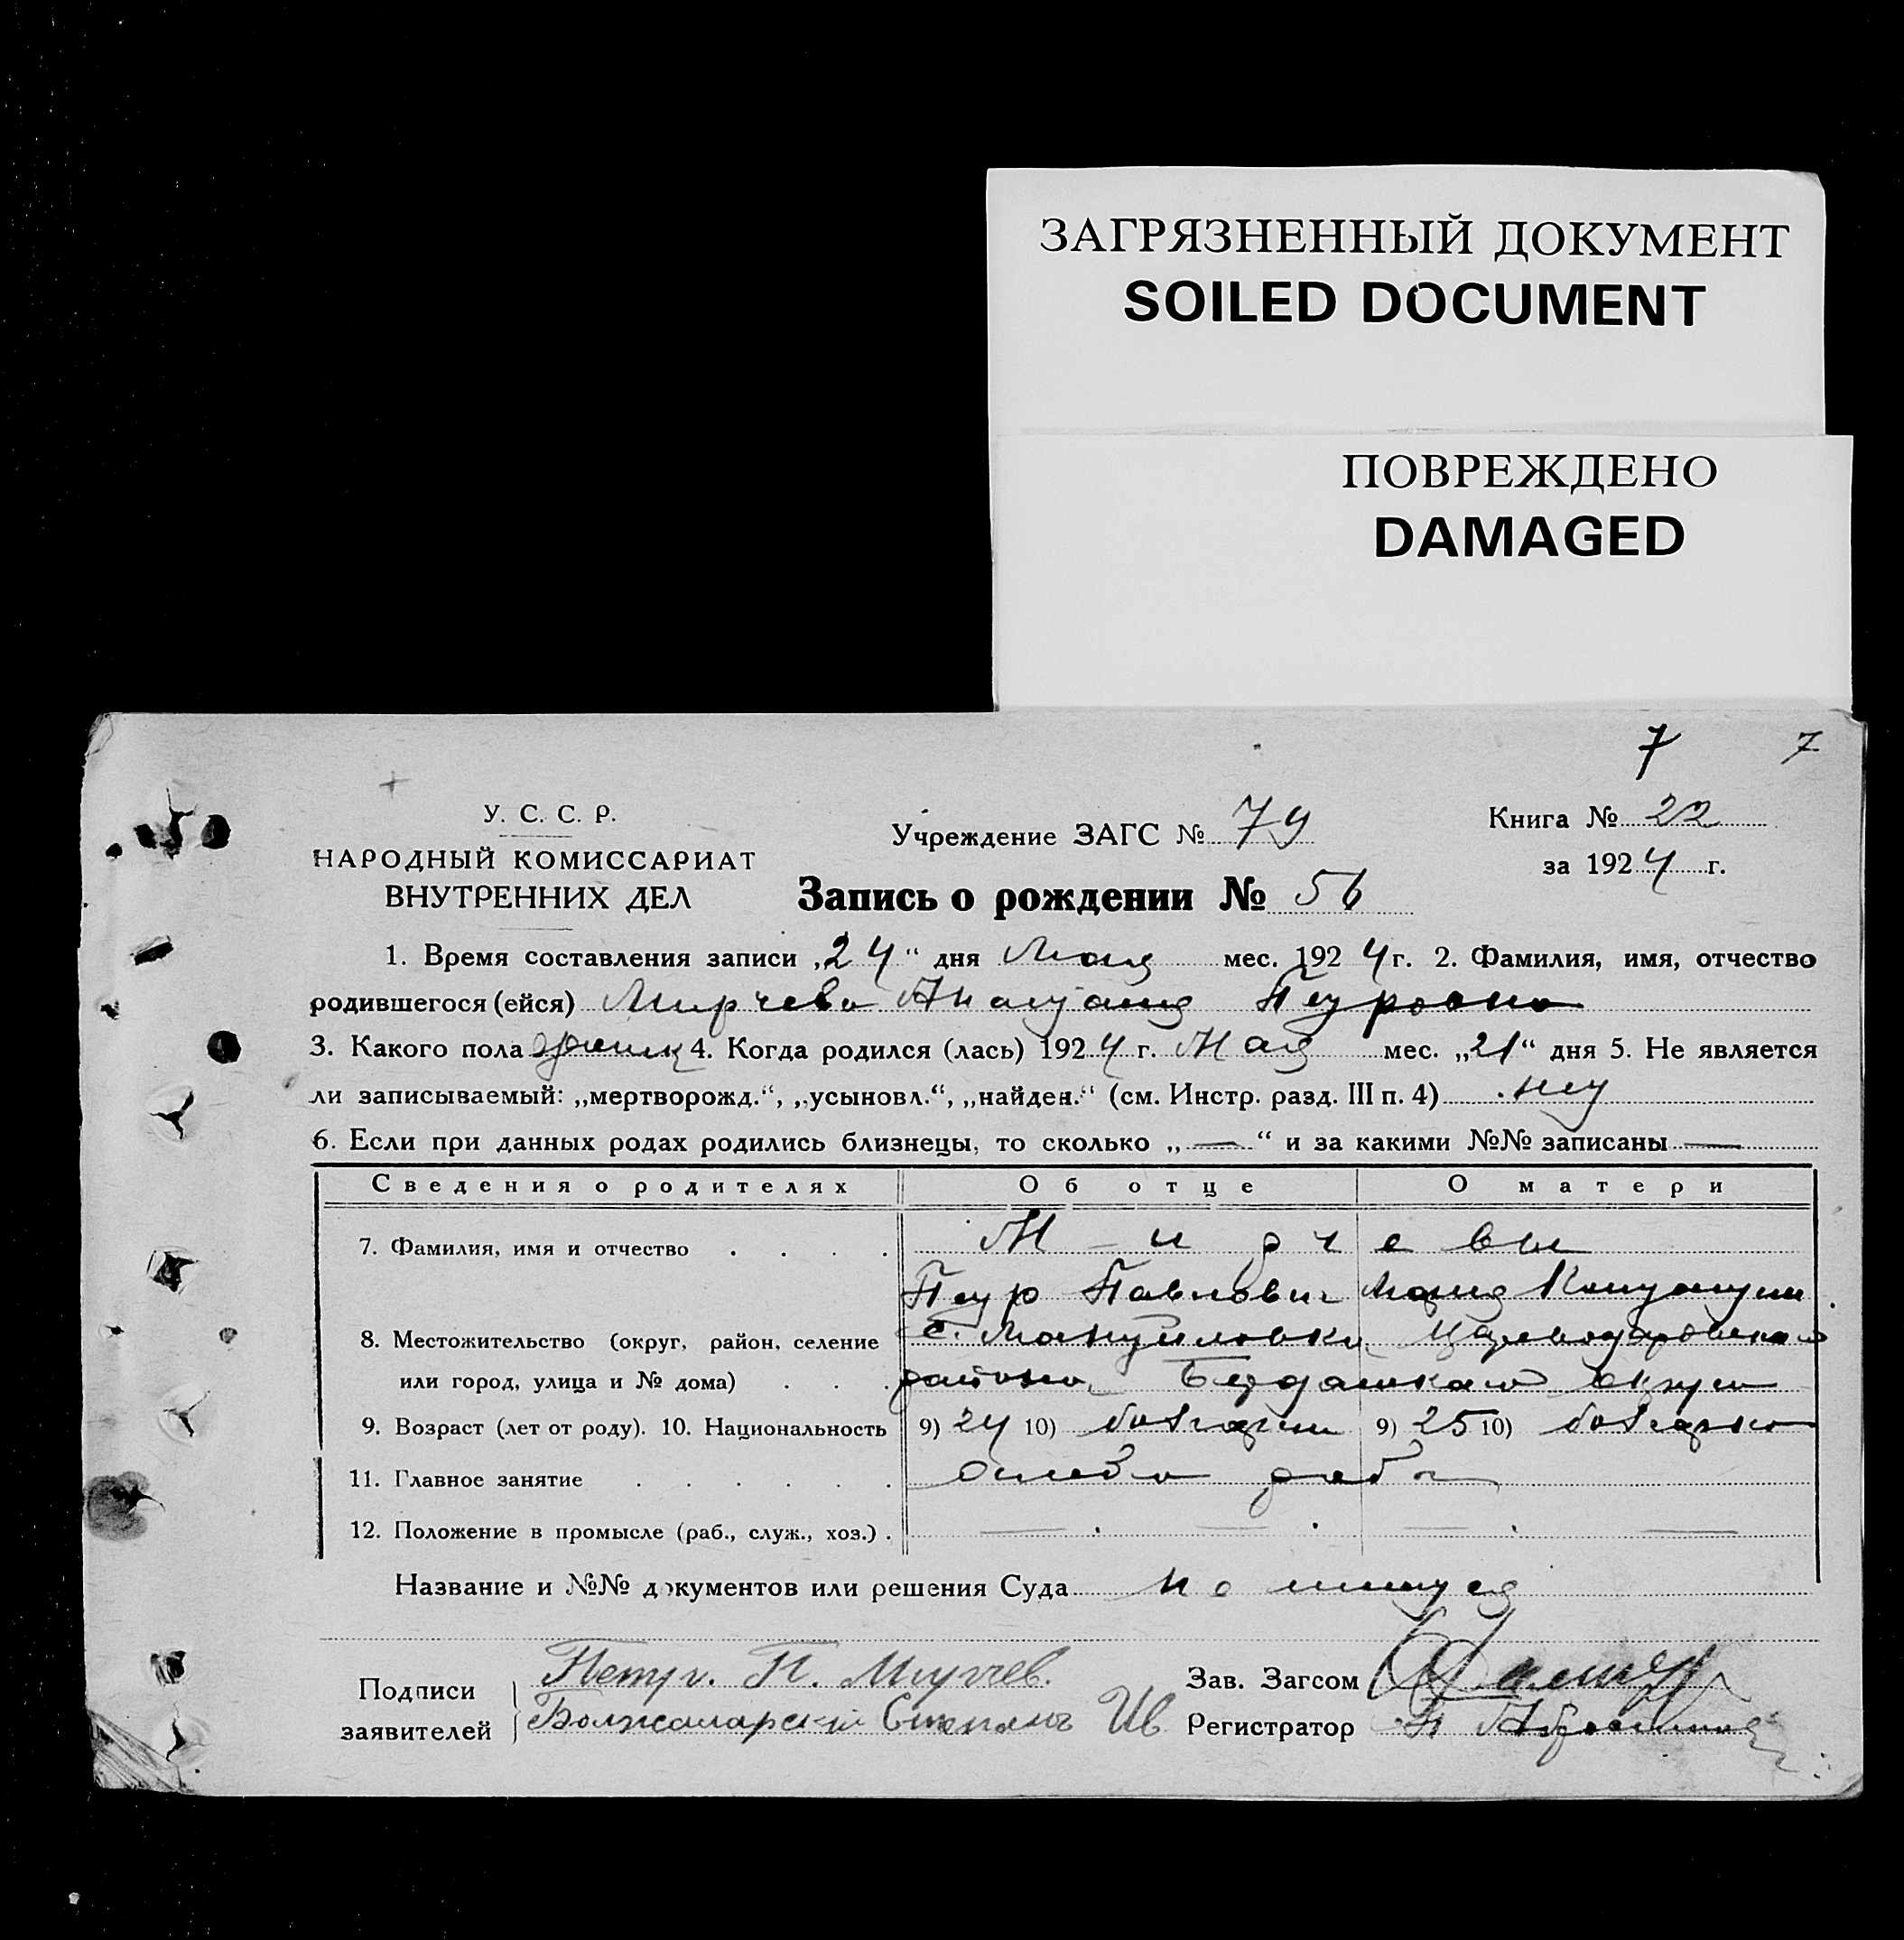 ЗАГРЯЗНЕННЫЙ ДОКУМЕНТ
SOILED DOCUMENT
ПОВРЕЖДЕНО
DAMAGED
7 7
У. С. С. Р.
НАРОДНЫЙ КОМИССАРИАТ
ВНУТРЕННИХ ДЕЛ
Учреждение ЗАГС № 79
Книга № 22
за 1924 г.
Запись о рождении № 56
1. Время составления записи „24“ дня Мая мес. 1924 г. 2. Фамилия, имя, отчество
родившегося (ейся) Мирчева Анастасия Петровна
3. Какого пола женск 4. Когда родился (лась) 1924 г. Мая мес. „21“ дня 5. Не является
ли записываемый: „мертворожд.“, „усыновл.“, „найден.“ (см. Инстр. разд. III п. 4) нет
6. Если при данных родах родились близнецы, то сколько „—“ и за какими №№ записаны —
Сведения о родителях Об отце О матери
7. Фамилия, имя и отчество . . . . Мирчевы
Петр Павлович Мария
8. Местожительство (округ, район, селение с. Мануйловка Цареводаровского
или город, улица и № дома) . . . района, Бердянского округа
9. Возраст (лет от роду). 10. Национальность 9) 24 10) болгарин 9) 25 10) болгарка
11. Главное занятие . . . . . .
12. Положение в промысле (раб., служ., хоз.) . — . — . — . —
Название и №№ документов или решения Суда не имеется
Подписи заявителей Петр. П. Мирчев.
Степанъ Ив
Зав. Загсом
Регистратор